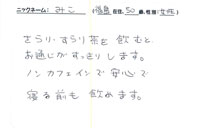 ニックネーム: みこ (福島 在住, 50 歳, 性別: 女性)
さらり・すらり茶を飲むと、
お通じがすっきりします。
ノンカフェインで安心で
寝る前も飲めます。